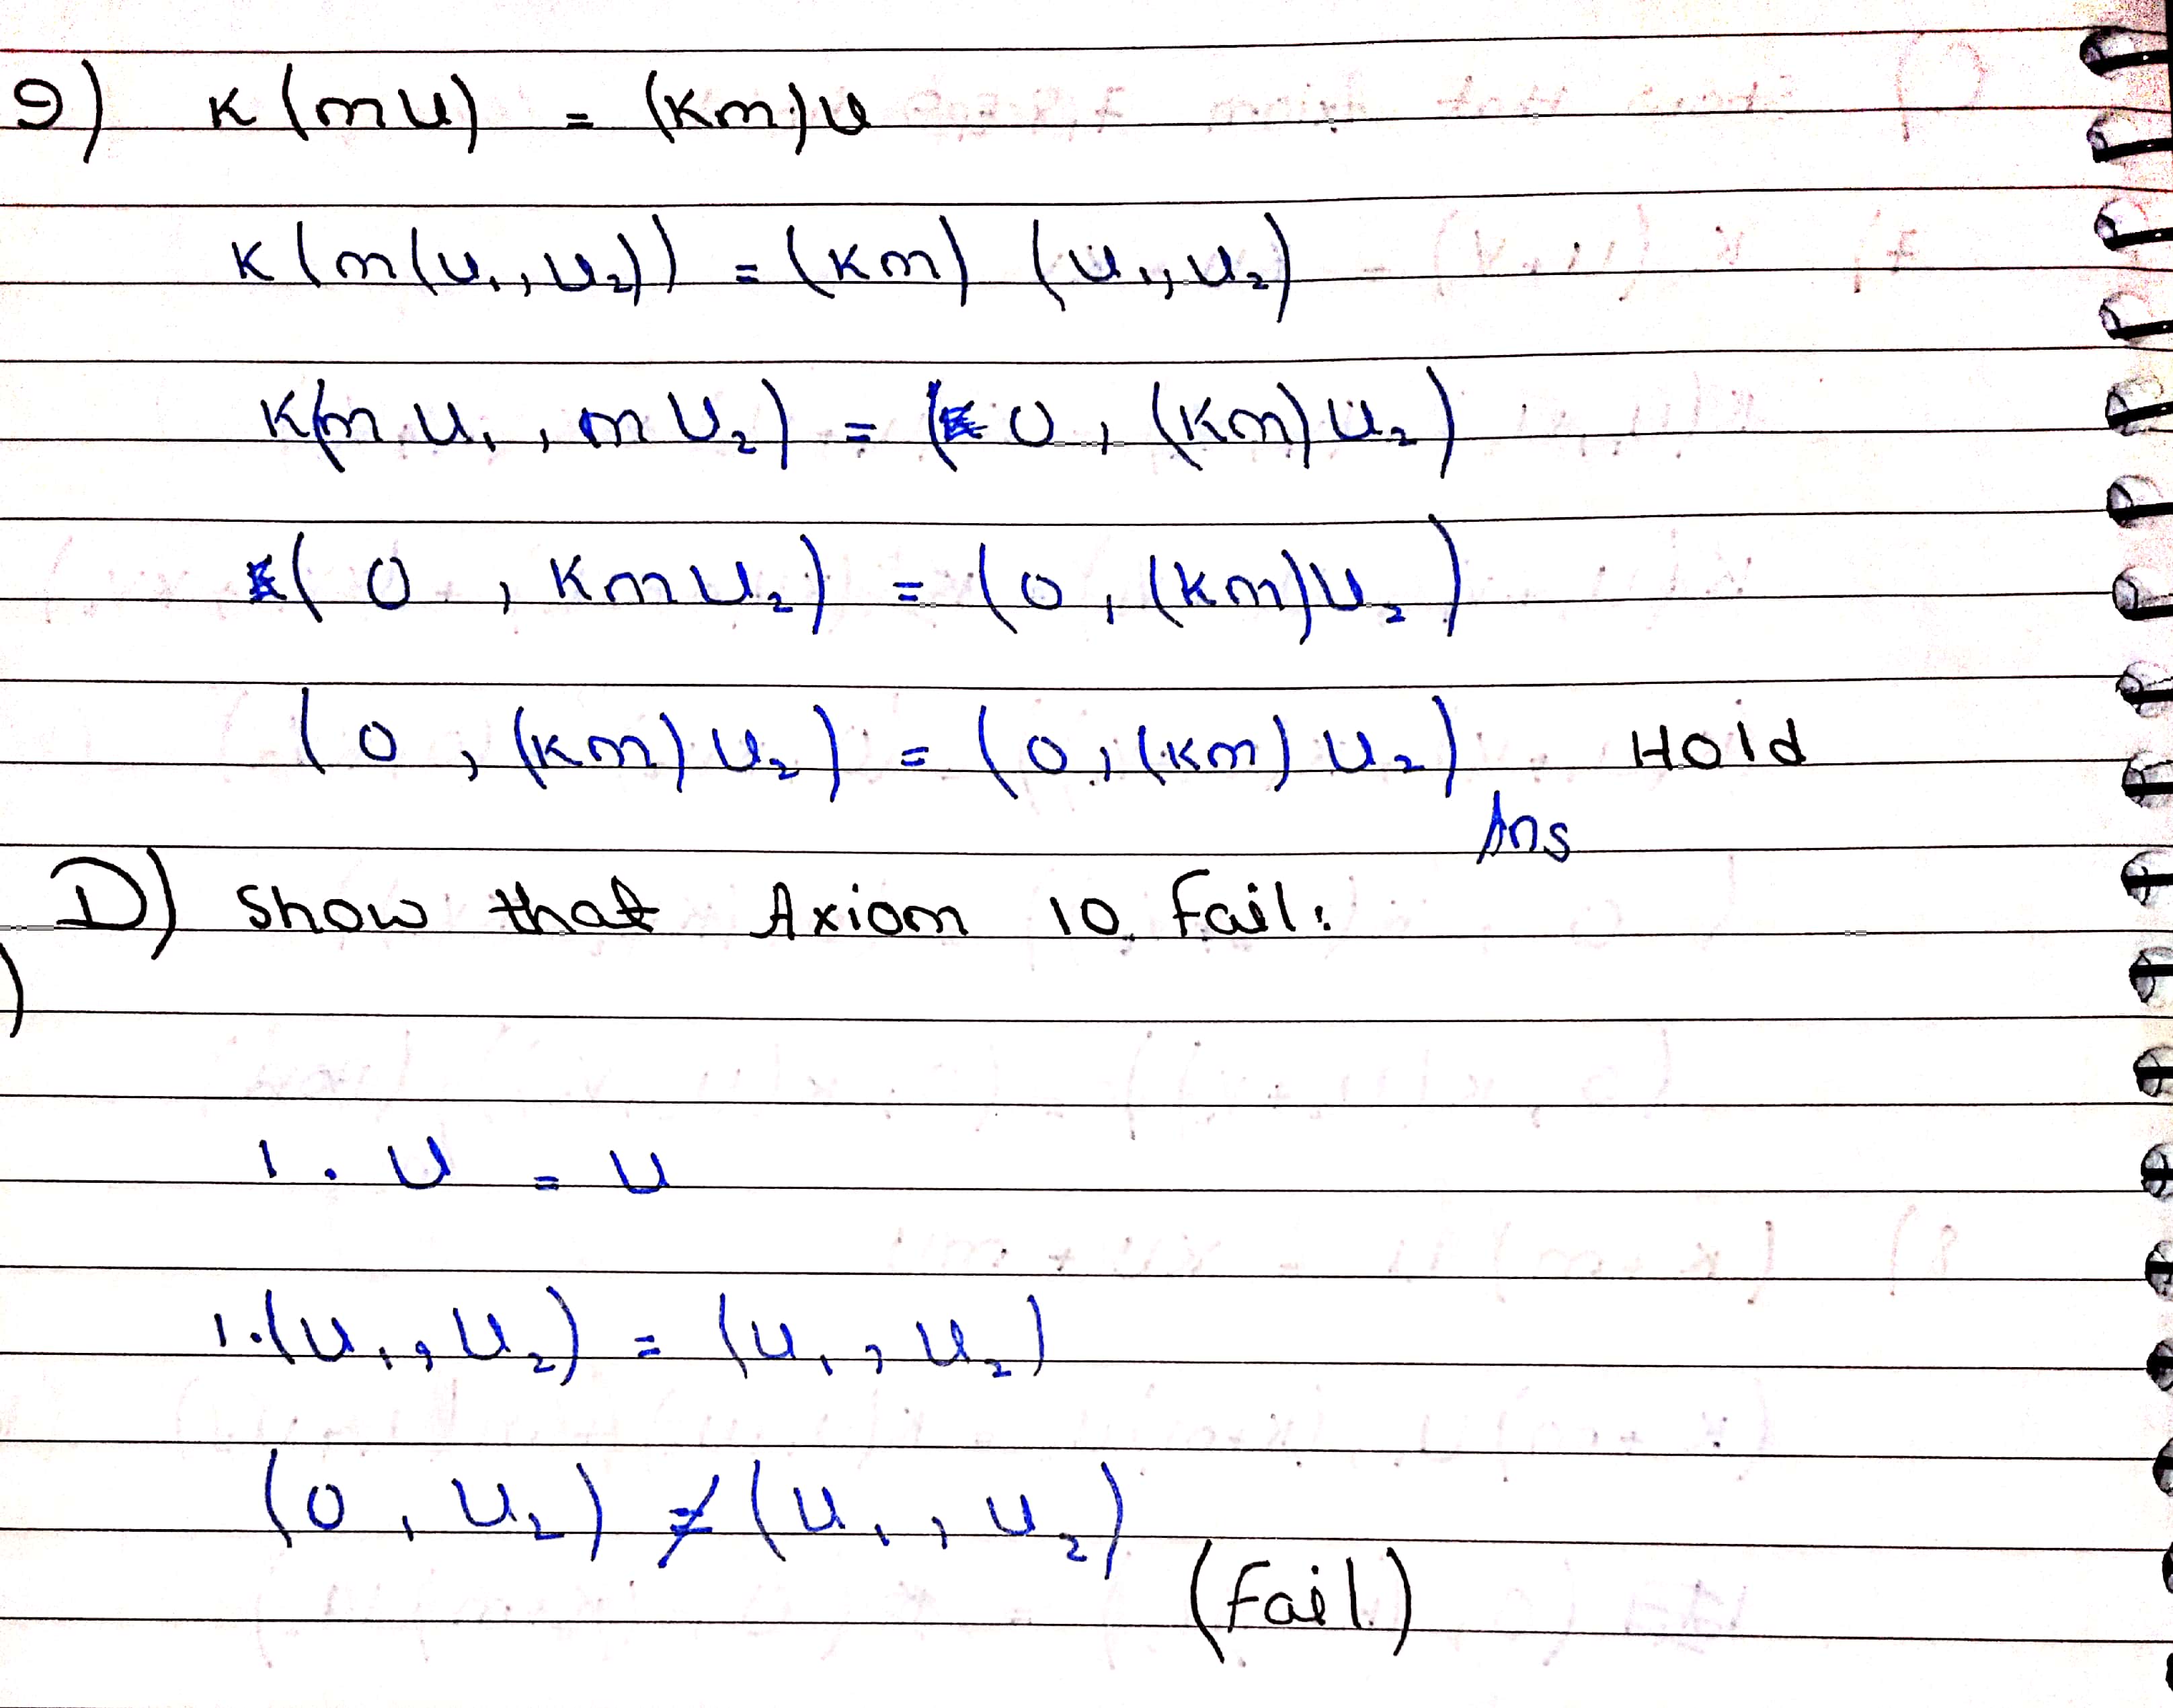 9) K(mu) = (Km)u
K(m(u₁, u₂)) = (Km) (u₁, u₂)
K(m u₁, m u₂) = (0, (Km)u₂)
(0, Kmu₂) = (0, (Km)u₂)
(0, (Km)u₂) = (0, (Km)u₂) Hold
Ans
D) Show that Axiom 10 Fail:
1. u = u
1.(u₁, u₂) = (u₁, u₂)
(0, u₂) ≠ (u₁, u₂)
(Fail)